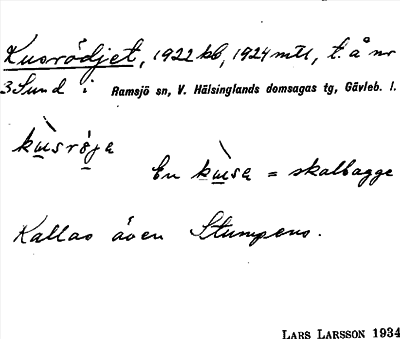 Kusrödjet, 1922 kb, 1924 mtl, t. å nr
3 Sund i Ramsjö sn, V. Hälsinglands domsagas tg, Gävleb. l.
kùsrøja
En kùsa = skalbagge
Kallas även Stumpens.
LARS LARSSON 1934